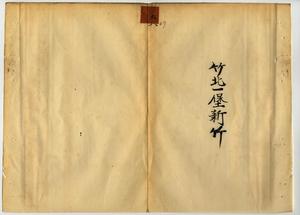 竹北一堡新竹